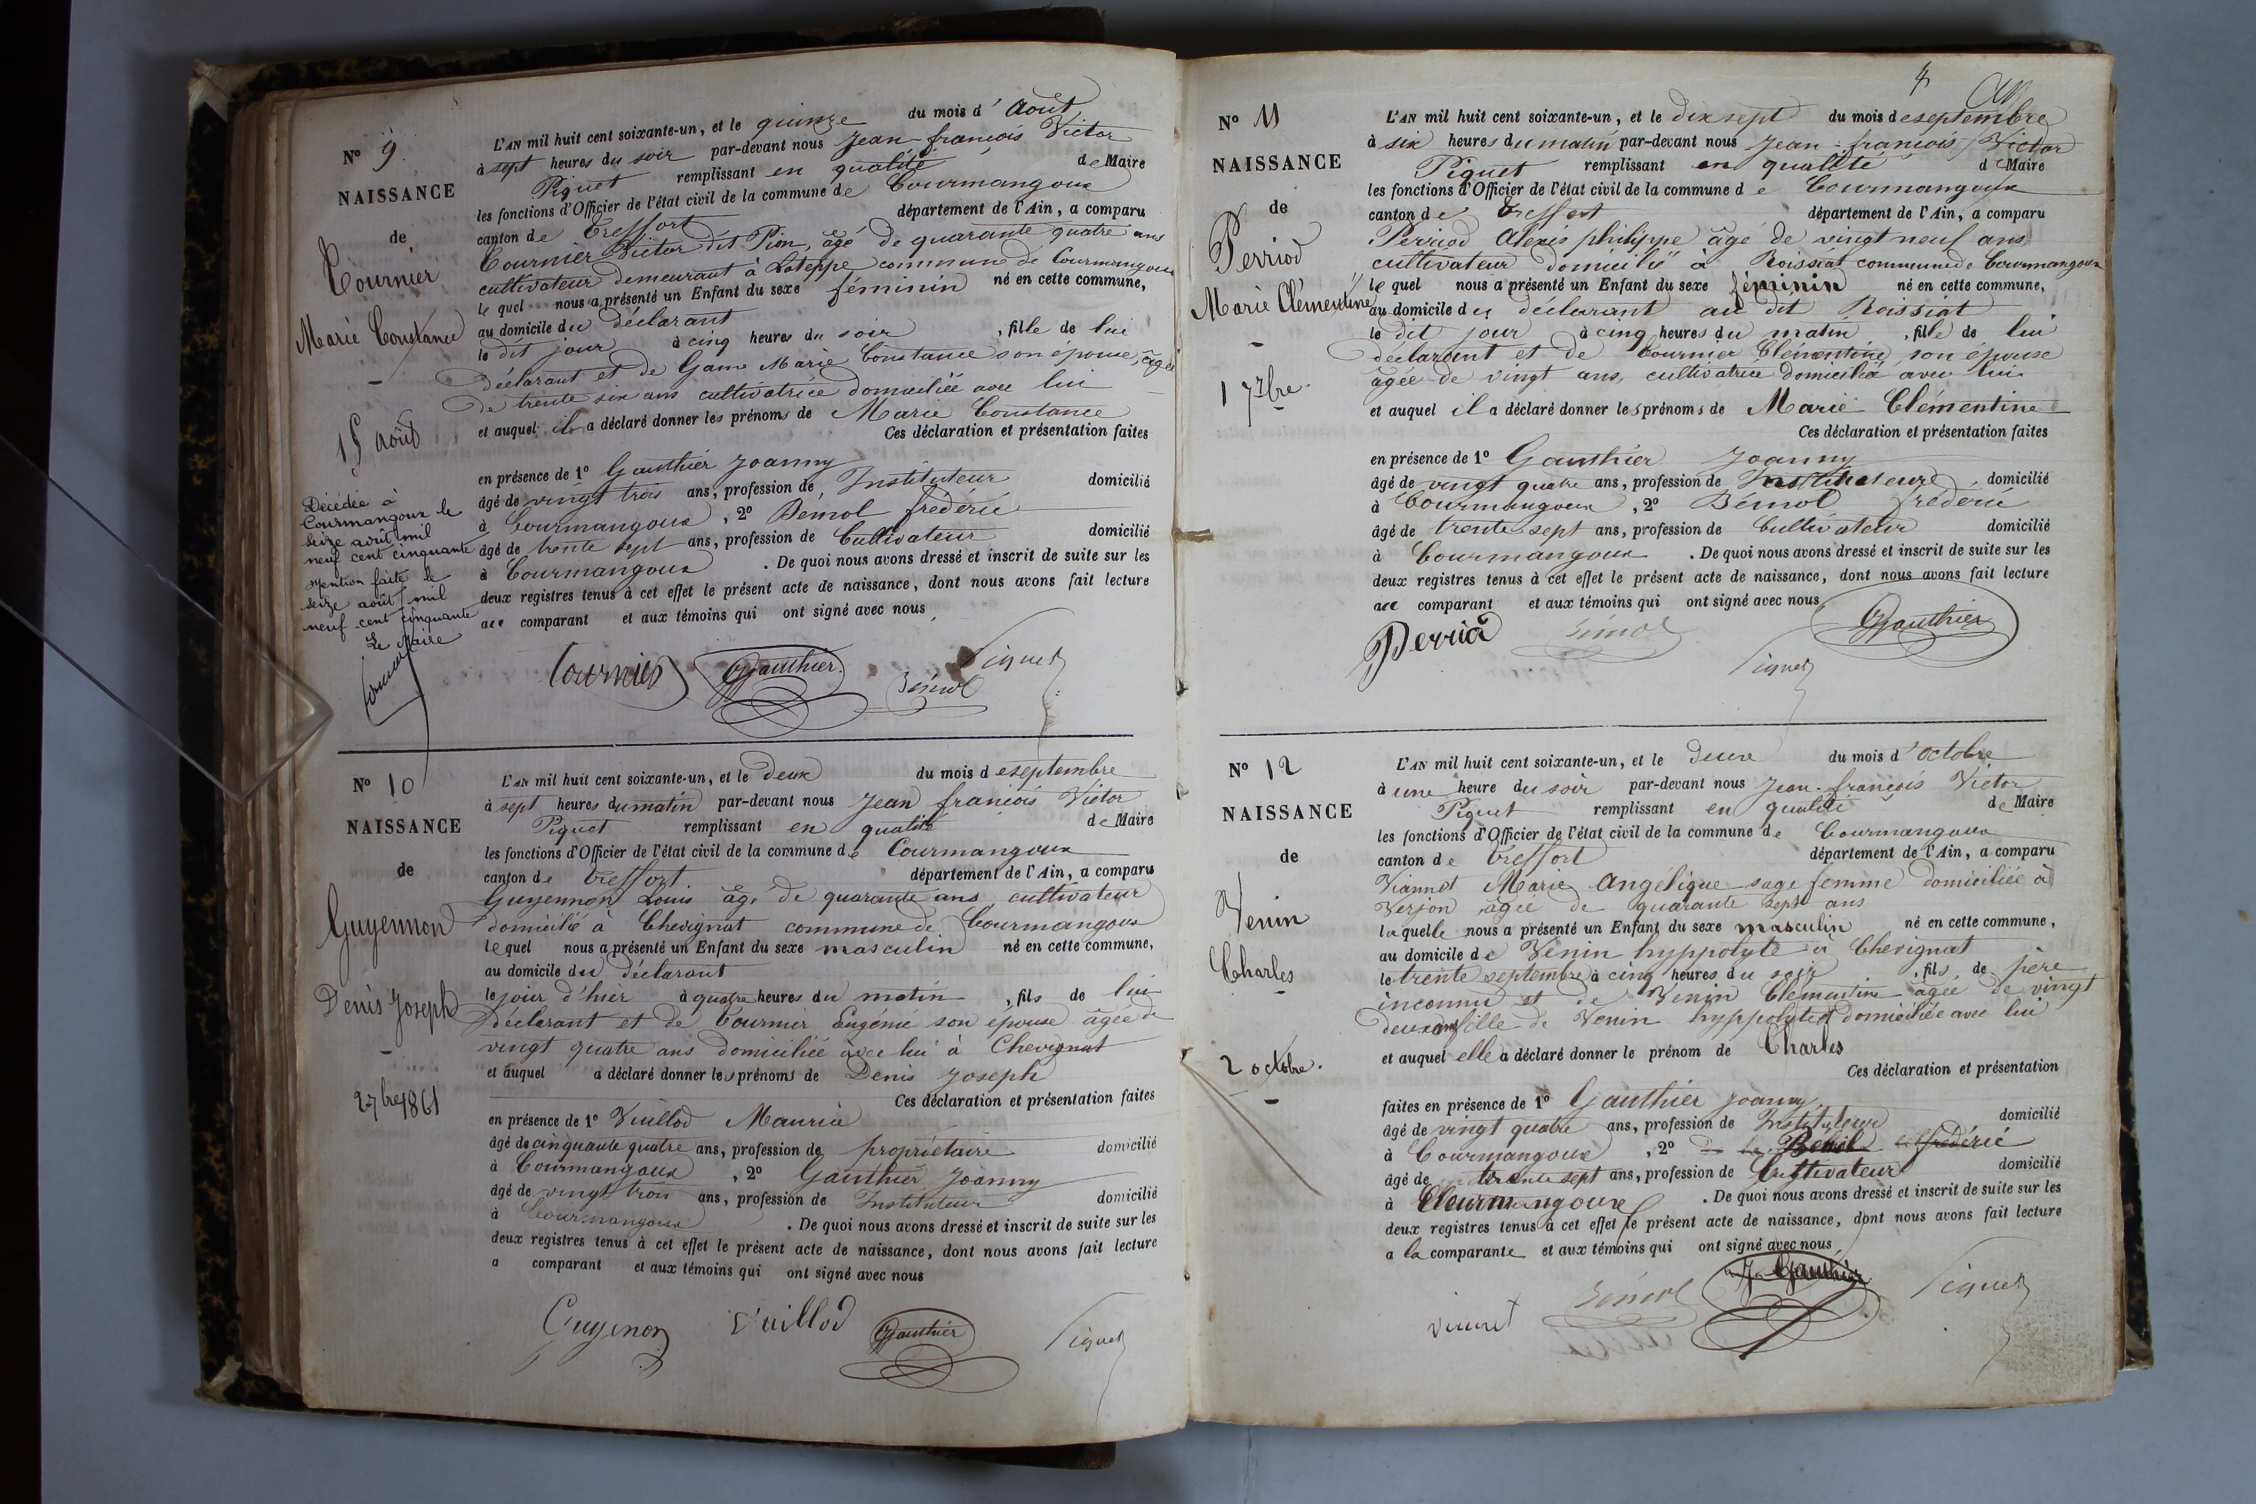 N° 9
NAISSANCE
de
Tournier
Marie Constance
15 août
Décédée à
Courmangoux le
seize août mil
neuf cent cinquante
Mention faite le
seize août mil
neuf cent cinquante
Le Maire
L'AN mil huit cent soixante-un, et le quinze du mois d'Août
à sept heures du soir par-devant nous Jean-françois Victor
Piquet remplissant en qualité de Maire
les fonctions d'Officier de l'état civil de la commune de Courmangoux
canton de Treffort département de l'Ain, a comparu
Tournier Victor dit Pion, âgé de quarante quatre ans
cultivateur demeurant à Roteppe commune de Courmangoux
le quel nous a présenté un Enfant du sexe féminin né en cette commune,
au domicile du déclarant
le dit jour à cinq heures du soir, fille de lui
déclarant et de Game Marie Constance son épouse, âgée
de trente six ans cultivatrice domiciliée avec lui
et auquel il a déclaré donner les prénoms de Marie Constance
Ces déclaration et présentation faites
en présence de 1° Gauthier Joanny
âgé de vingt trois ans, profession de Instituteur domicilié
à Courmangoux, 2° Bémol frédéric
âgé de trente sept ans, profession de Cultivateur domicilié
à Courmangoux. De quoi nous avons dressé et inscrit de suite sur les
deux registres tenus à cet effet le présent acte de naissance, dont nous avons fait lecture
au comparant et aux témoins qui ont signé avec nous
Tournier Gauthier Bémol Piquet
N° 10
NAISSANCE
de
Guyennon
Denis Joseph
2 7bre 1861
L'AN mil huit cent soixante-un, et le deux du mois de septembre
à sept heures du matin par-devant nous Jean françois Victor
Piquet remplissant en qualité de Maire
les fonctions d'Officier de l'état civil de la commune de Courmangoux
canton de Treffort département de l'Ain, a comparu
Guyennon Louis âgé de quarante ans cultivateur
domicilié à Chevignat commune de Courmangoux
le quel nous a présenté un Enfant du sexe masculin né en cette commune,
au domicile du déclarant
le jour d'hier à quatre heures du matin, fils de lui
déclarant et de Tournier Eugénie son épouse âgée de
vingt quatre ans domiciliée avec lui à Chevignat
et auquel a déclaré donner les prénoms de Denis Joseph
Ces déclaration et présentation faites
en présence de 1° Vuillod Maurice
âgé de cinquante quatre ans, profession de propriétaire domicilié
à Courmangoux, 2° Gauthier Joanny
âgé de vingt trois ans, profession de Instituteur domicilié
à Courmangoux. De quoi nous avons dressé et inscrit de suite sur les
deux registres tenus à cet effet le présent acte de naissance, dont nous avons fait lecture
a comparant et aux témoins qui ont signé avec nous
Guyenon Vuillod Gauthier Piquet
4
N° 11
NAISSANCE
de
Perriod
Marie Clémentine
17 7bre
L'AN mil huit cent soixante-un, et le dix sept du mois de septembre
à six heures du matin par-devant nous Jean-françois Victor
Piquet remplissant en qualité de Maire
les fonctions d'Officier de l'état civil de la commune de Courmangoux
canton de Treffort département de l'Ain, a comparu
Perriod Alexis philippe âgé de vingt neuf ans
cultivateur domicilié à Roissiat commune de Courmangoux
le quel nous a présenté un Enfant du sexe féminin né en cette commune,
au domicile du déclarant au dit Roissiat
le dit jour à cinq heures du matin, fille de lui
déclarant et de Tournier Clémentine son épouse
âgée de vingt ans, cultivatrice domiciliée avec lui
et auquel il a déclaré donner les prénoms de Marie Clémentine
Ces déclaration et présentation faites
en présence de 1° Gauthier Joanny
âgé de vingt quatre ans, profession de Instituteur domicilié
à Courmangoux, 2° Bémol frédéric
âgé de trente sept ans, profession de Cultivateur domicilié
à Courmangoux. De quoi nous avons dressé et inscrit de suite sur les
deux registres tenus à cet effet le présent acte de naissance, dont nous avons fait lecture
au comparant et aux témoins qui ont signé avec nous
Perriod Bémol Gauthier
Piquet
N° 12
NAISSANCE
de
Venin
Charles
2 octobre.
L'AN mil huit cent soixante-un, et le deux du mois d'octobre
à une heure du soir par-devant nous Jean-françois Victor
Piquet remplissant en qualité de Maire
les fonctions d'Officier de l'état civil de la commune de Courmangoux
canton de Treffort département de l'Ain, a comparu
Viannet Marie Angélique sage femme domiciliée à
Verjon âgée de quarante sept ans
laquelle nous a présenté un Enfant du sexe masculin né en cette commune,
au domicile de Venin hyppolyte à Chevignat
le trente septembre à cinq heures du soir, fils de père
inconnu et de Venin Clémentine âgée de vingt
deux ans fille de Venin hyppolyte domiciliée avec lui
et auquel elle a déclaré donner le prénom de Charles
Ces déclaration et présentation
faites en présence de 1° Gauthier Joanny
âgé de vingt quatre ans, profession de Instituteur domicilié
à Courmangoux, 2° Bémol frédéric
âgé de trente sept ans, profession de Cultivateur domicilié
à Courmangoux. De quoi nous avons dressé et inscrit de suite sur les
deux registres tenus à cet effet le présent acte de naissance, dont nous avons fait lecture
a la comparante et aux témoins qui ont signé avec nous
Bémol J. Gauthier Piquet